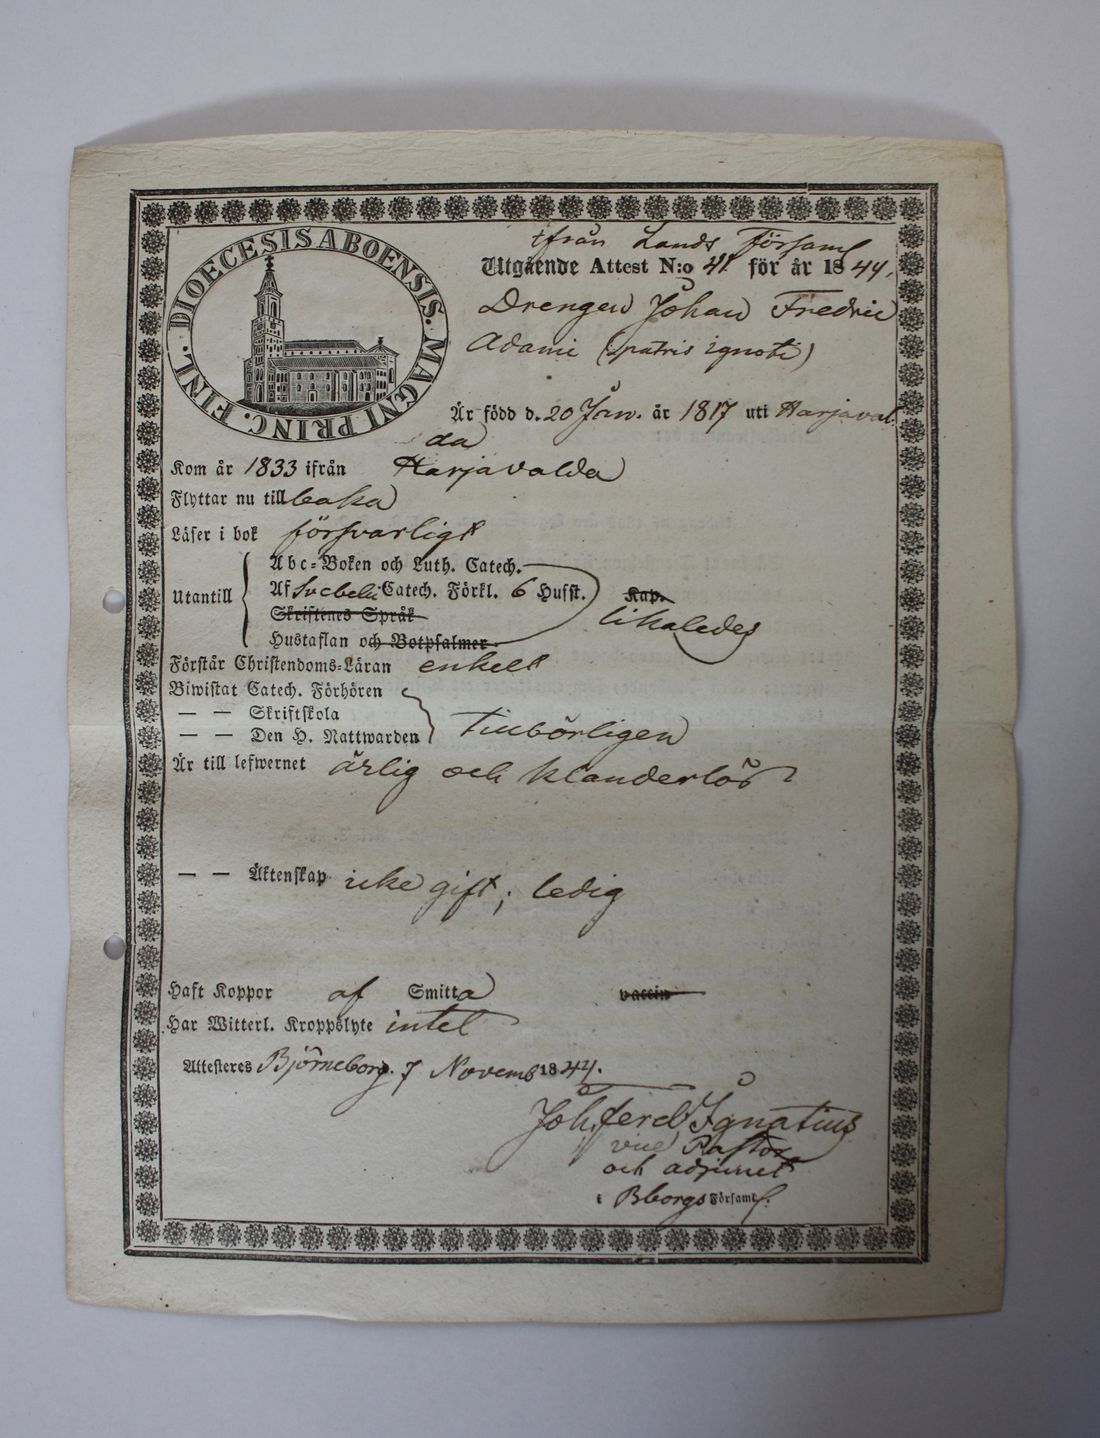 DIOECESIS ABOENSIS. MAGNI PRINC. FINL.
ifrån Lands Församl
Utgående Attest N:o 41. för år 1844.
Drengen Johan Fredric
Adami (patris ignoti)
Är född d. 20 Jan. år 1817 uti Harjaval
da
Kom år 1833 ifrån Harjavalda
Flyttar nu till baka
Läser i bok försvarligt
Utantill
Abc-Boken och Luth. Catech.
Af Svebelii Catech. Förkl. 6 Hufst. Kap.
Skriftenes Språk likaledes
Hustaflan och Botpsalmer
Förstår Christendoms-Läran enkelt
Biwistat Catech. Förhören
— — Skriftskola
— — Den H. Nattwarden tilbörligen
Är till lefwernet ärlig och klanderlös
— — Äktenskap icke gift; ledig
Haft Koppor af Smitta vaccin
Har Witterl. Kroppslyte intet
Attesteres Björneborg. 7 Novemb 1844.
Joh. Ferd Ignatius
vice Pastor
och adjunct
i Bborgs Församl.